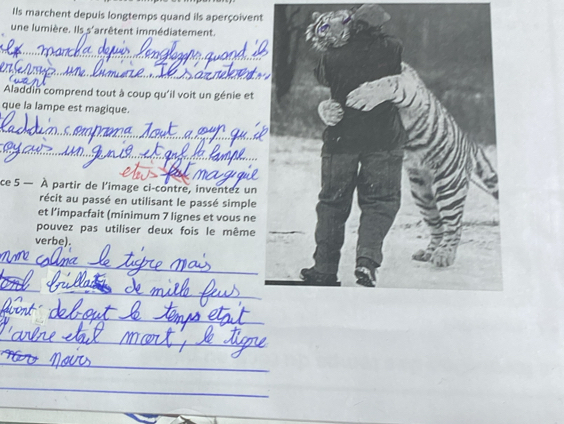 Ils marchent depuis longtemps quand ils aperçoivent
une lumière. Ils s'arrêtent immédiatement.
marcha depuis longtemps quand ils
une lumière. Ils s'arretèrent
Aladdin comprend tout à coup qu'il voit un génie et
que la lampe est magique.
Laddin comprena tout a coup qu'il
voyais un génie et que la lampe
était fut magique
ce 5 — À partir de l'image ci-contre, inventez un
récit au passé en utilisant le passé simple
et l'imparfait (minimum 7 lignes et vous ne
pouvez pas utiliser deux fois le même
verbe).
colina le tigre mais
brillait de mille feus
debout le temps etait
l'arbre etait mort, le tigre
noirs